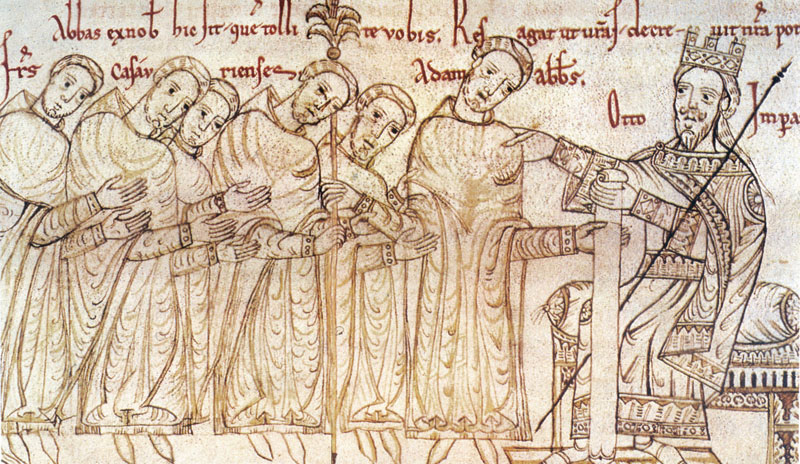 Abbas ex nob hic sit. que tolli te vobis. Res agat ut urās decre vit nrā pot
Frs Casau rienses Adam abbs.
Otto Impa